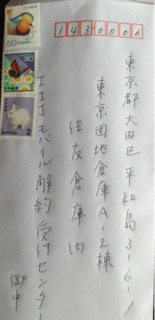 1430006
東京都大田区平和島3-6-1
東京団地倉庫A-2棟
住友倉庫内
IIJモバイル解約受付センター
御中
50
30
2